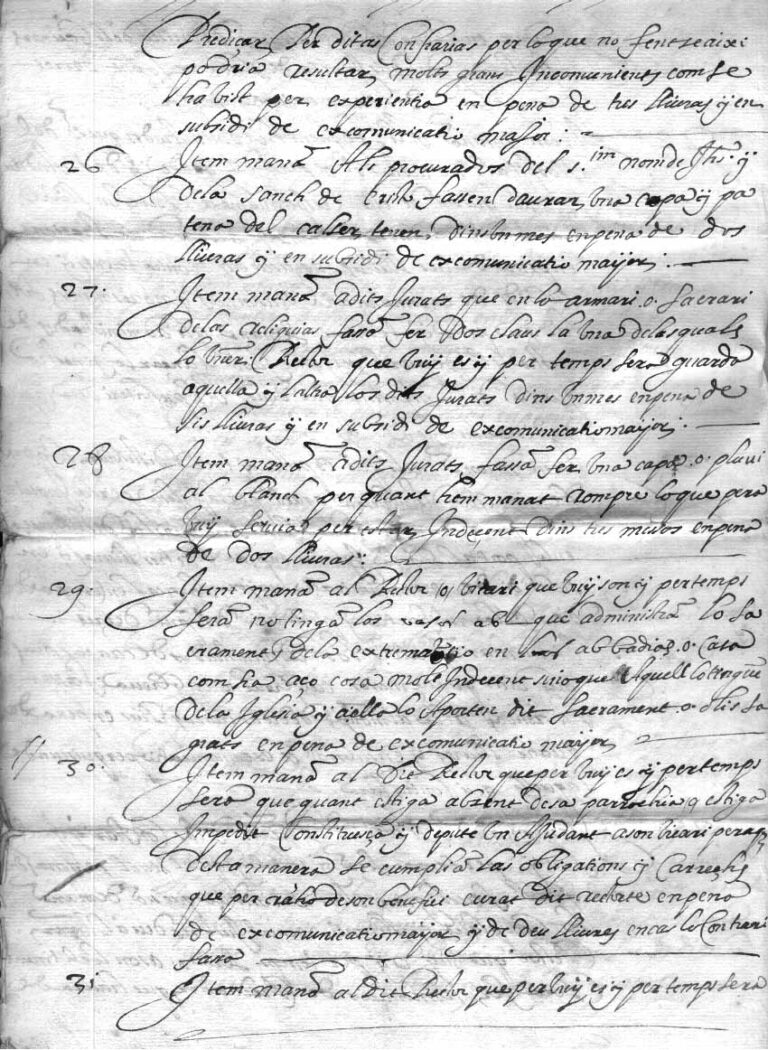 Predicar, Per ditas Confrarias per lo que no fentse aixi
podria resultar, molts grans Inconvenients com se
ha vist per experientia en pena de tres lliuras y en
subsidi de excomunicatio major: -
26 Item manà Als procurados del s.im nom de Jhs. y
dela sanch de Crist fassen daurar, una copa y pa
tena del caller, tenen, dins un mes en pena de dos
lliuras y en subsidi de excomunicatio maijor;
27. Item manà a dits Jurats que en lo armari. o. sacrari
de las Reliquias fassā fer Dos claus la una delas quals
lo Rector que vuy es y per temps sera guarda
aquella y laltra los dits Jurats dins un mes en pena de
sis lliuras y en subsidi de excomunicatio maijor;
28 Item manà a dits Jurats fassā fer una capa. o. pluvi
al blanch per quant hem manat rompre lo que pera
vuy servia per estar, Indecent dins tres mesos en pena
de dos lliuras:
29. Item manà al Rector o vicari que vuy son y per temps
serā no tingā los vasos ab que administrā lo sa
crament dela extremautio en las abbadias. o. casa
com sia aço cosa molt Indecent sino que Aquell
dela Iglesia y a ella lo Aporten dit sacrament. o. olis sa
grats en pena de excomunicatio maijor,
30. Item manà al Dit Rector que per vuy es y per temps
sera que quant estiga absent de sa parrochia o estiga
Impedit Constituesca y depute un Ajudant a son vicari per aq
desta manera se cumpliā las obligations y Carrechs
que per ratio de son benefici curat dit rector te en pena
de excomunicatio maijor y de deu lliures en cas lo Contrari
fassa
31 Item manà al dit Rector que per vuy es y per temps sera